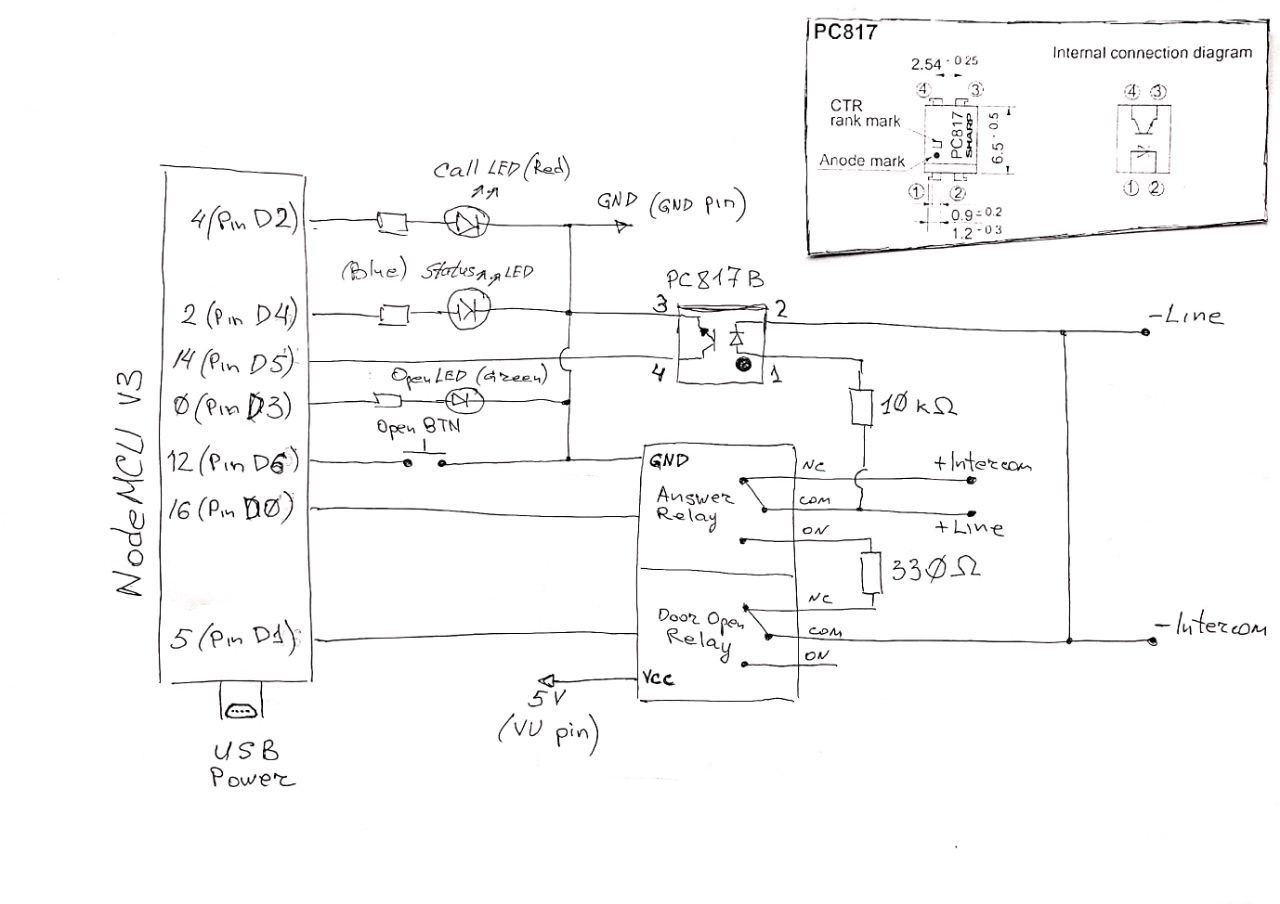 PC817
Internal connection diagram
2.54 - 0.25
④ ③
CTR
rank mark
PC817
SHARP
6.5 - 0.5
Anode mark
① ②
0.9 ± 0.2
1.2 - 0.3
④ ③
① ②
Call LED (Red)
4 (Pin D2)
GND (GND pin)
(Blue) Status LED
PC817B
3
2
2 (Pin D4)
-Line
14 (Pin D5)
4
1
Open LED (Green)
0 (Pin D3)
10 kΩ
Open BTN
12 (Pin D6)
GND
NC
+Intercom
16 (Pin D0)
Answer
Relay
COM
+Line
ON
330Ω
NodeMCU V3
NC
5 (Pin D1)
Door Open
Relay
COM
-Intercom
ON
VCC
5V
(VU pin)
USB
Power